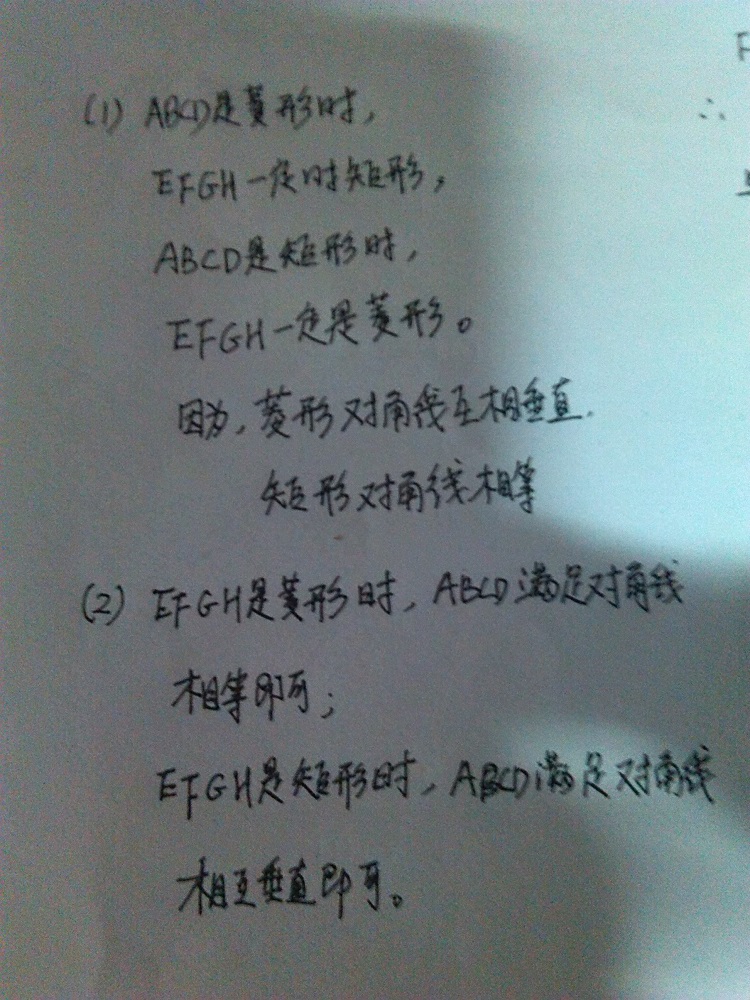 (1) ABCD是菱形时,
EFGH一定时矩形;
ABCD是矩形时,
EFGH一定是菱形。
因为,菱形对角线互相垂直.
矩形对角线相等
(2) EFGH是菱形时, ABCD满足对角线
相等即可;
EFGH是矩形时, ABCD满足对角线
相互垂直即可。
∴